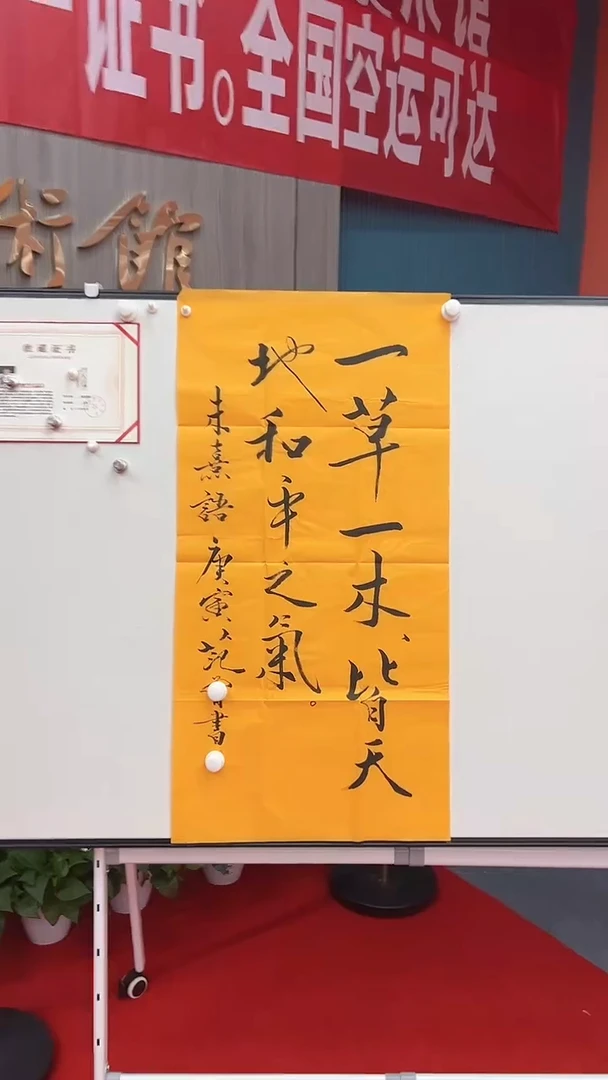 证书。全国空运可达
術館
收藏证书
一草一木、皆天
地和平之氣。
朱熹語 庚寅 范曾書